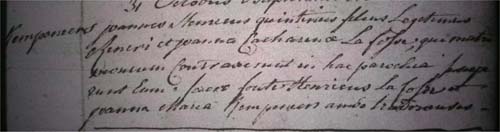 31 octobris
Kempeneers joannes Henricus quintinus filius Legitimus
Henrici et joanna Catharina La fosse, qui matri
monium Contraxerunt in hac parochia susce
runt Eum e sacro fonte Henricus La fosse et
joanna Maria Kempeneers ambo